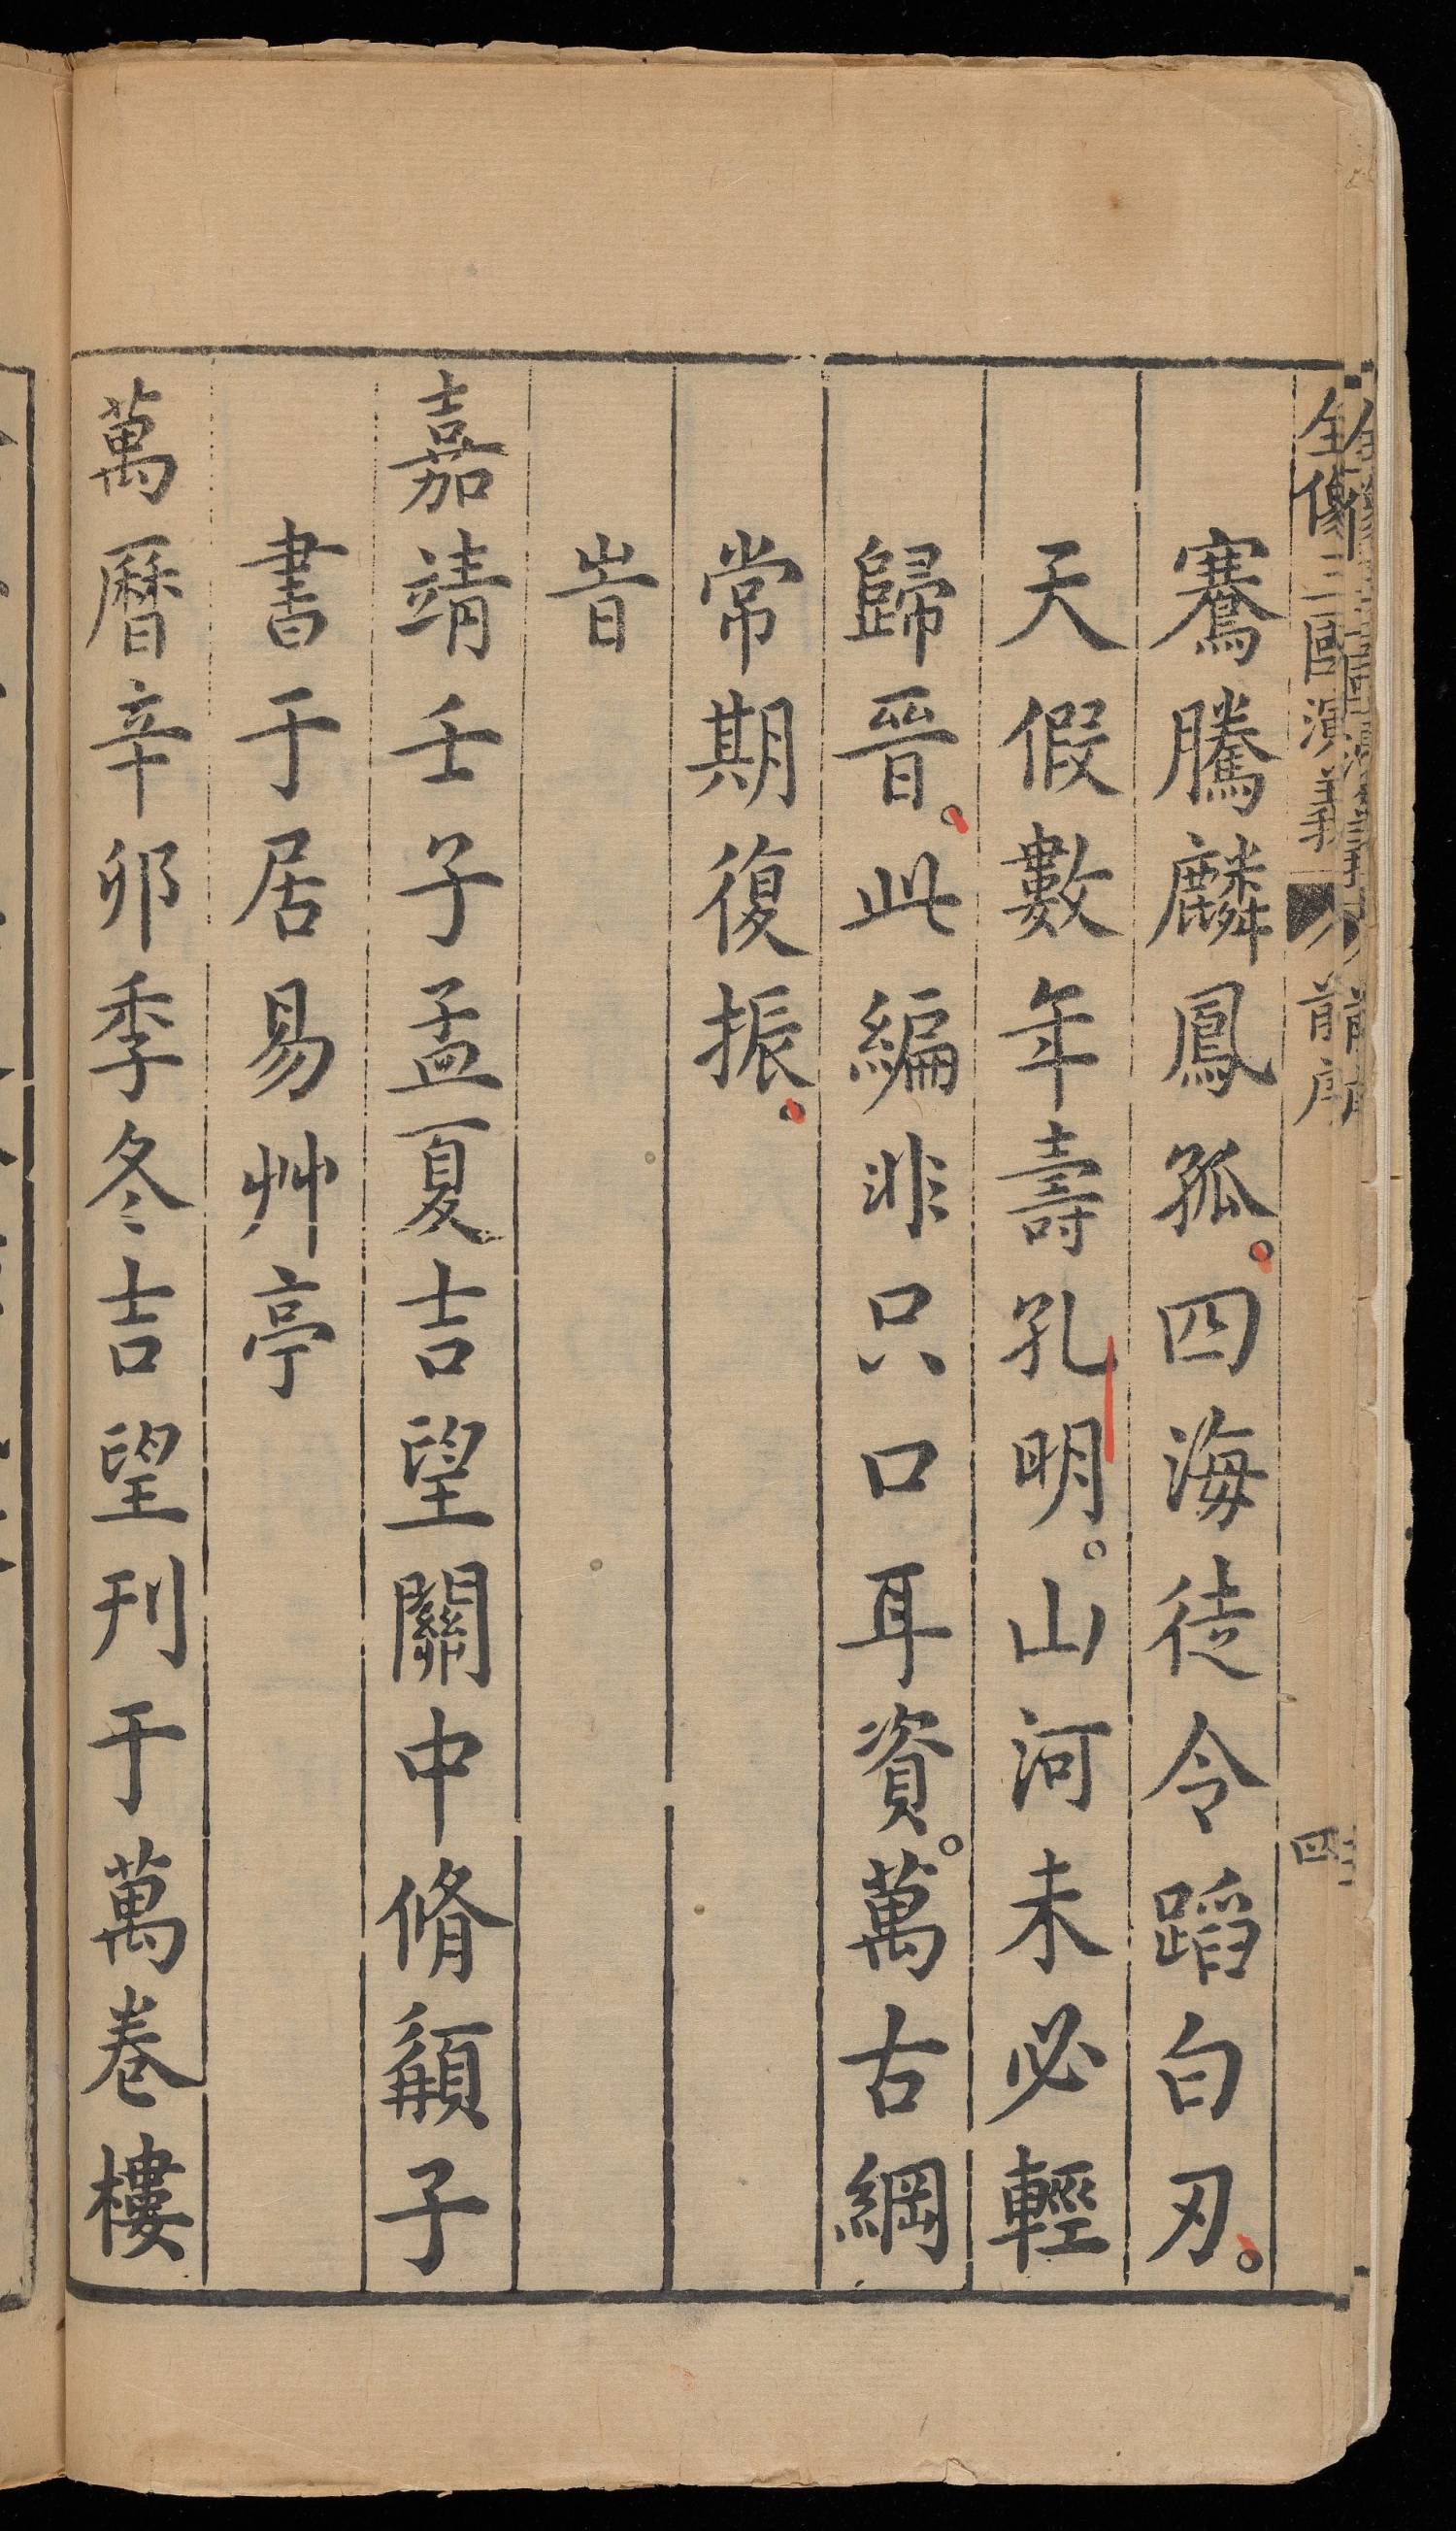 全像三國演義
前序
四
騫騰麟鳳孤。四海徒令蹈白刃。
天假數年壽孔明。山河未必輕
歸晉。此編非只口耳資。萬古綱
常期復振。
旹
嘉靖壬子孟夏吉望關中脩髯子
書于居易艸亭
萬曆辛卯季冬吉望刊于萬卷樓